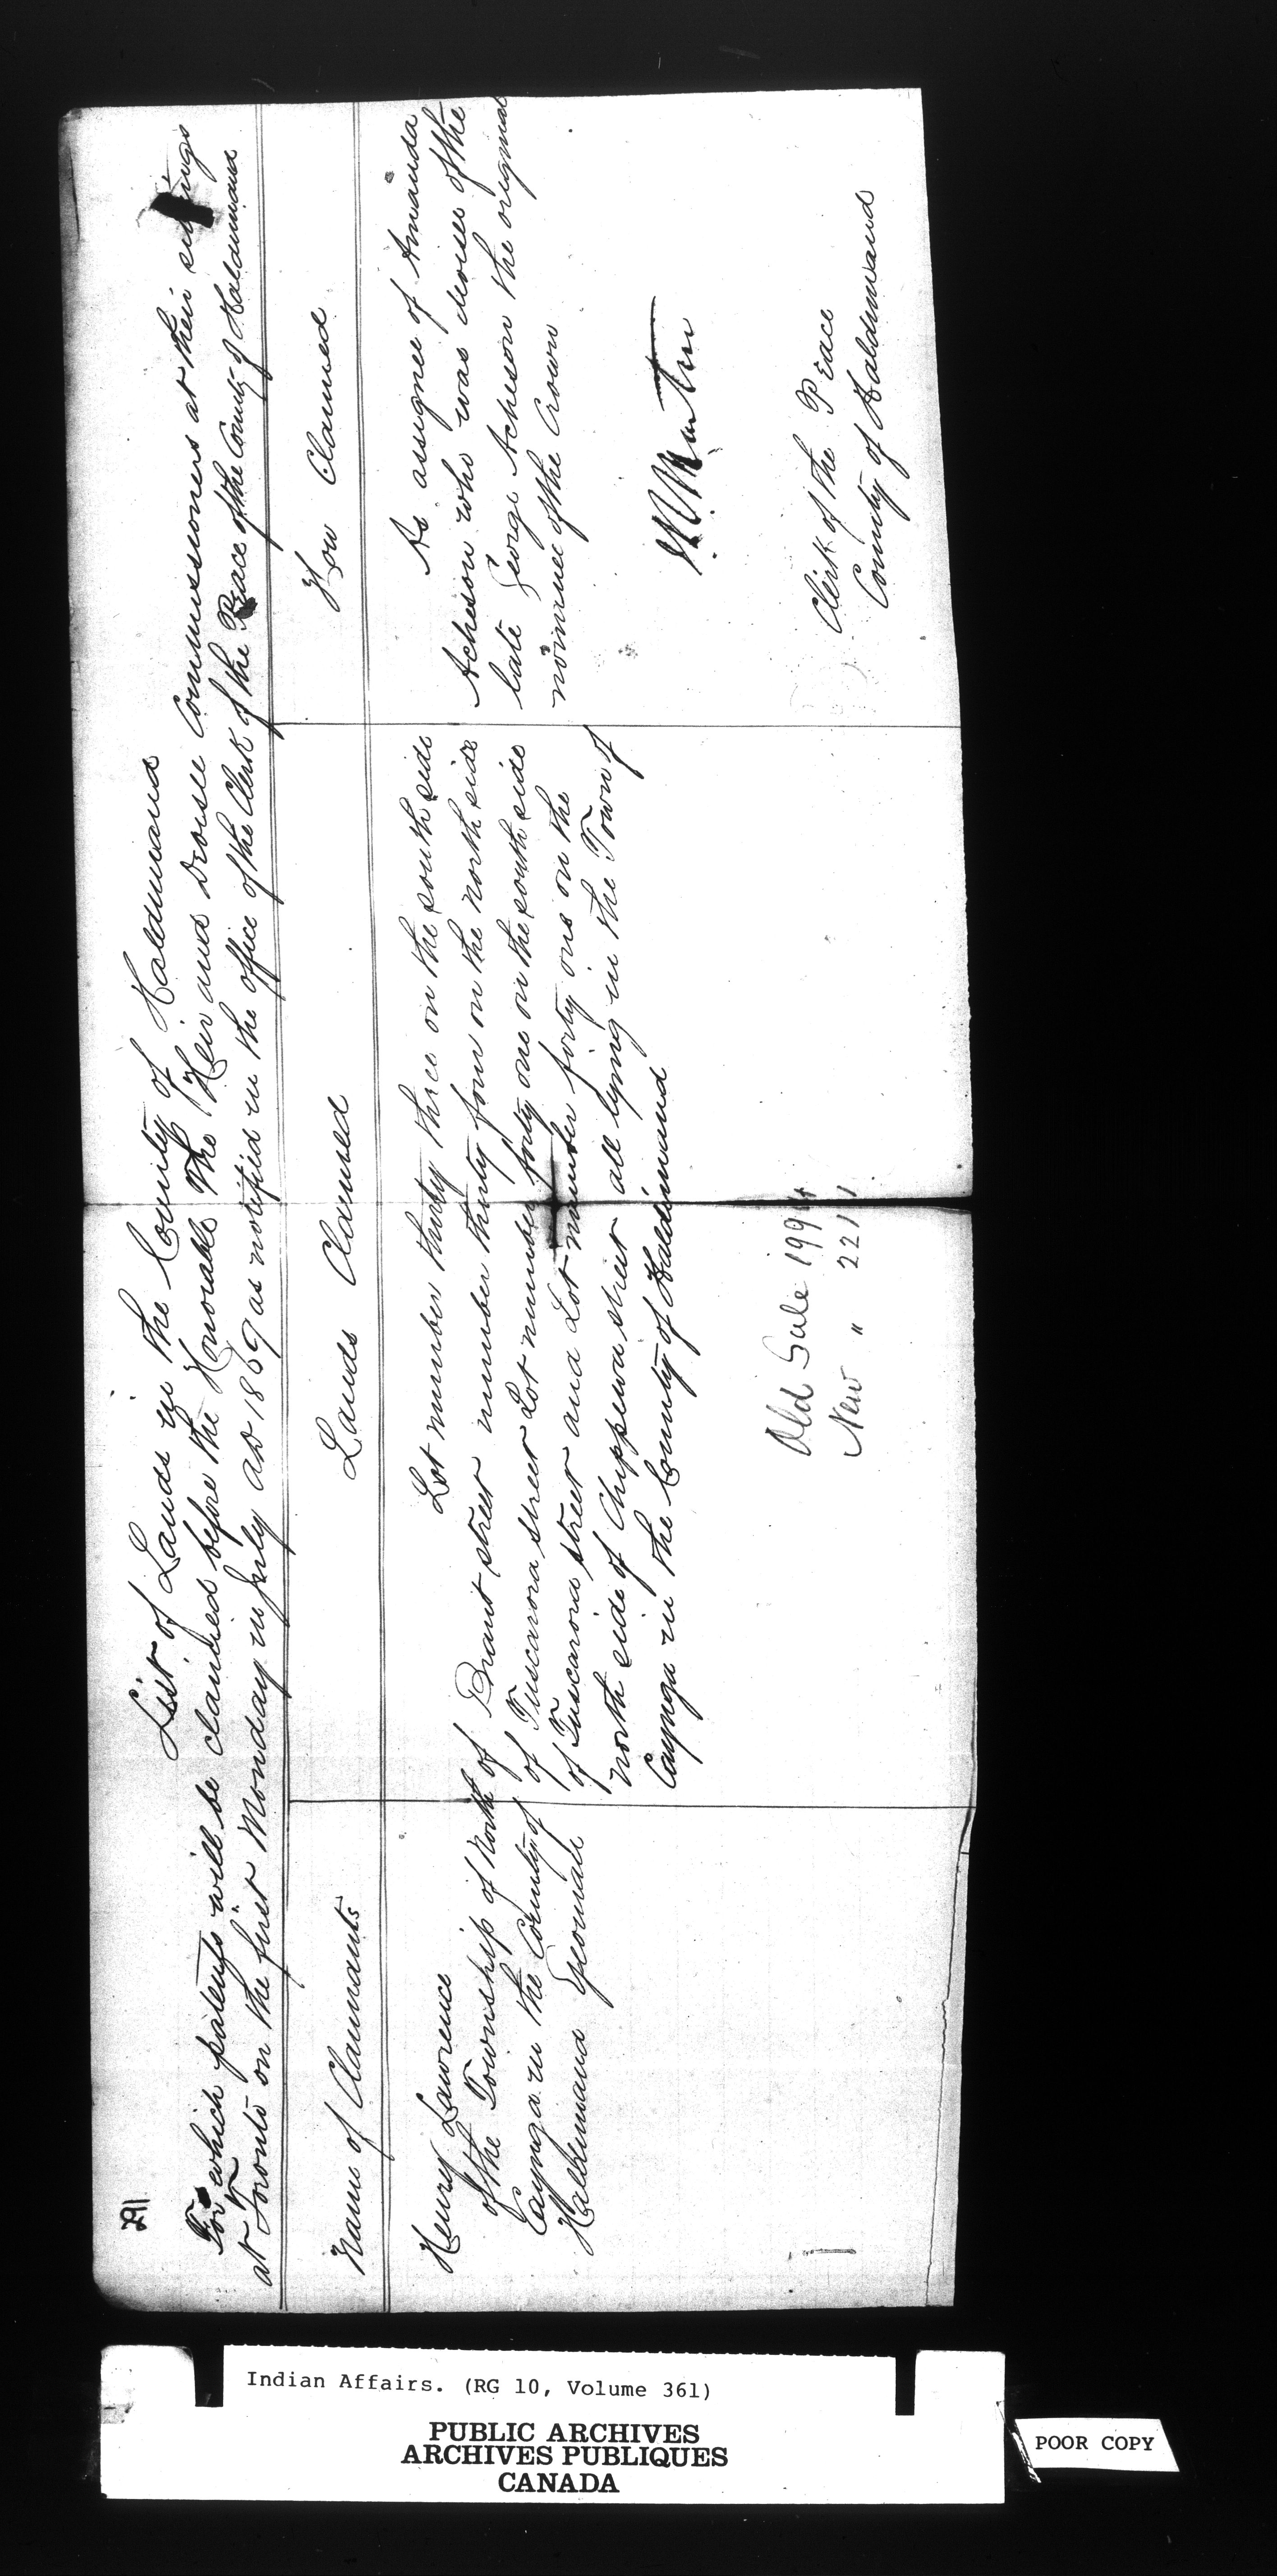 291
List of Lands in the County of Haldimand
For which patents will be claimed before the Honorable The Heir and Devisee Commissioners at their sittings
at Toronto on the first Monday in July AD 1869 as notified in the office of the Clerk of the Peace of the County of Haldimand
Name of Claimants
Henry Lawrence
of the Township of North
Cayuga in the County of
Haldimand Yeoman
Lands Claimed
Lot number thirty three on the south side
of Brant street number thirty four on the north side
of Tuscarora street Lot number forty one on the south side
of Tuscarora street and Lot number forty one on the
north side of Chippewa street all lying in the Town of
Cayuga in the County of Haldimand
Old Sale 1994
New " 2211
How Claimed
As assignee of Amanda
Acheson who was devisee of the
late George Acheson the original
nominee of the Crown
Martin
Clerk of the Peace
County of Haldimand
Indian Affairs. (RG 10, Volume 361)
PUBLIC ARCHIVES
ARCHIVES PUBLIQUES
CANADA
POOR COPY